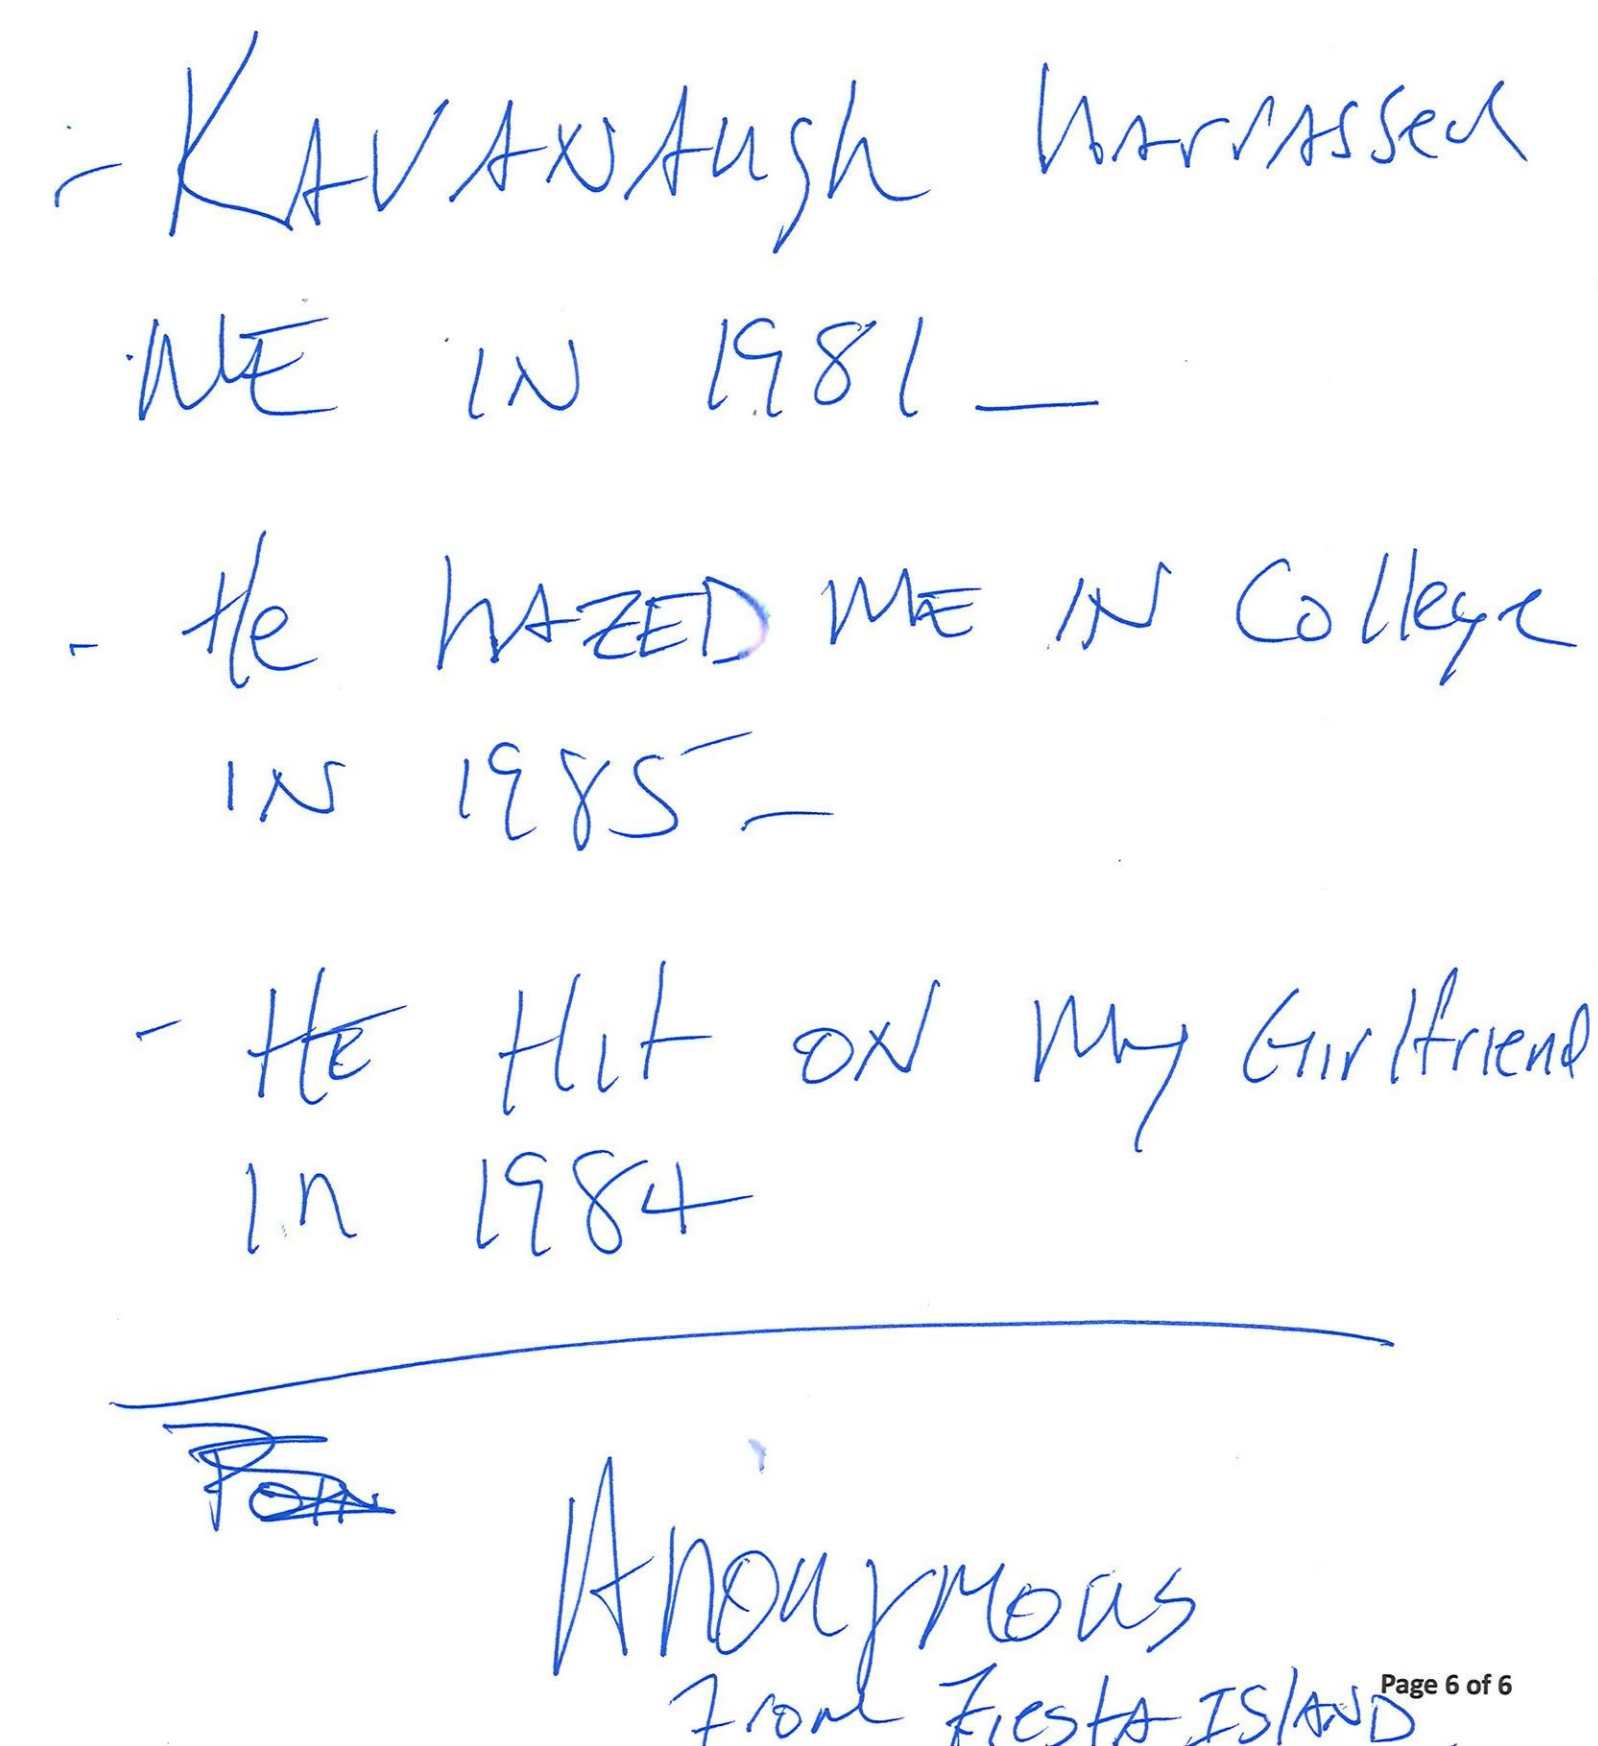 - KAVANAugh harrassed
ME IN 1981 —
- He hAZED ME IN College
IN 1985 —
- HE Hit ON My Girlfriend
In 1984
Anonymous
Page 6 of 6
From FiestA ISlAND